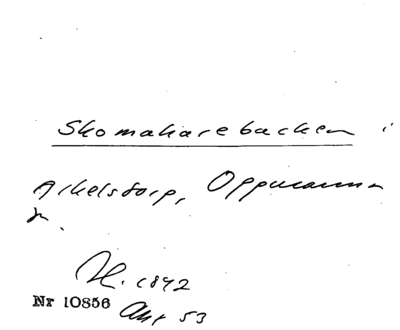 Skomakarebacken i
Arkelstorp, Oppmanna
sn.
H. 1842
Nr 10856 Akt 53